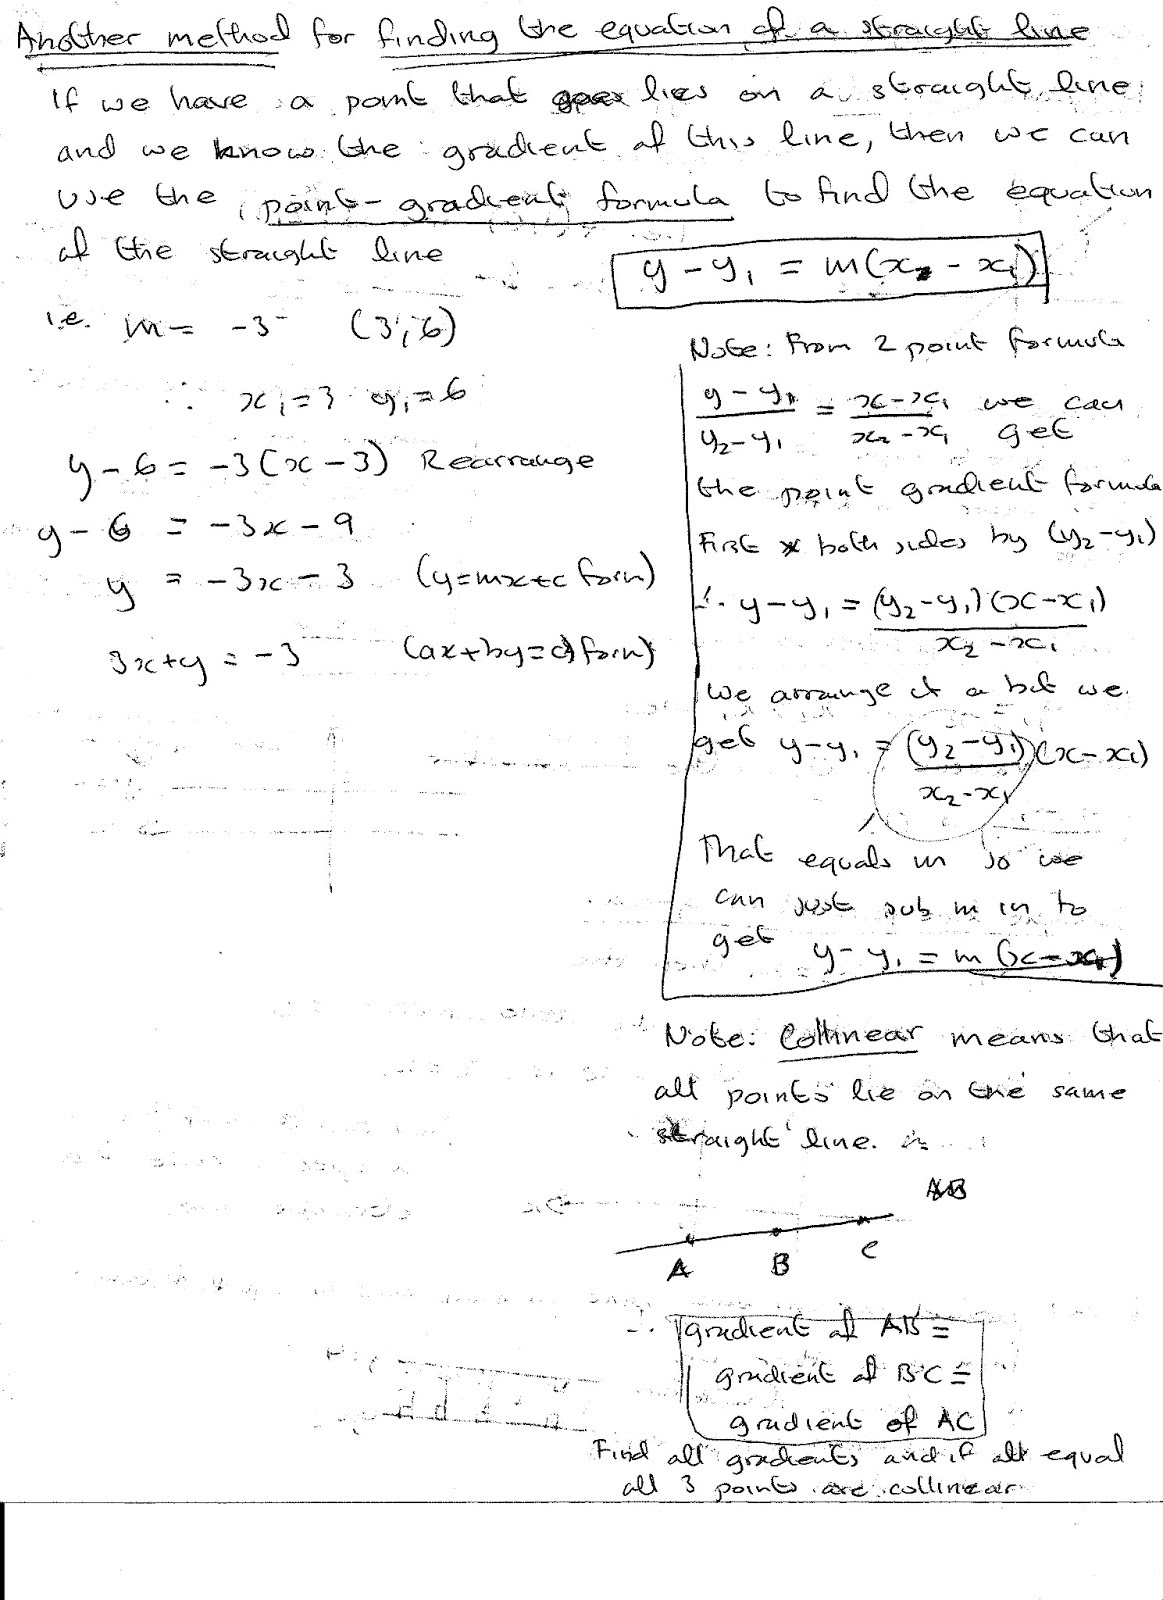 Another method for finding the equation of a straight line
If we have a point that lies on a straight line
and we know the gradient of this line, then we can
use the point-gradient formula to find the equation
of the straight line
y - y₁ = m(x - x₁)
i.e. m = -3 (3,6)
∴ x₁ = 3 y₁ = 6
y - 6 = -3(x - 3) Rearrange
y - 6 = -3x - 9
y = -3x - 3 (y=mx+c form)
3x+y = -3 (ax+by=c form)
Note: From 2 point formula
(y - y₁)/(y₂ - y₁) = (x - x₁)/(x₂ - x₁) we can
get
the point gradient formula
First × both sides by (y₂-y₁)
∴ y - y₁ = (y₂-y₁)(x-x₁)
x₂ - x₁
We arrange it a bit we
get y - y₁ = (y₂-y₁)(x-x₁)
x₂-x₁
That equals m so we
can just sub m in to
get y - y₁ = m(x-x₁)
Note: Collinear means that
all points lie on the same
straight line.
AB
A B C
∴ gradient of AB =
gradient of BC =
gradient of AC
Find all gradients and if all equal
all 3 points are collinear